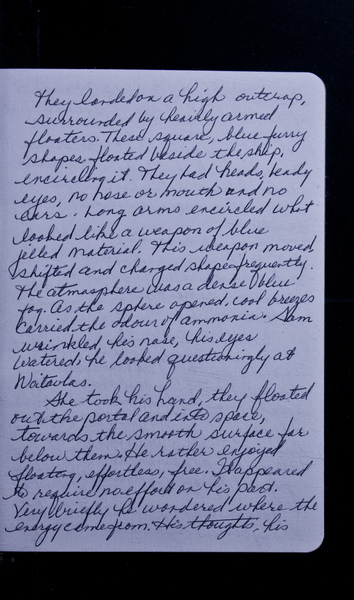 They landed on a high outcrop,
surrounded by heavily armed
floaters. These square, blue furry
shapes floated beside the ship,
encircling it. They had heads, beady
eyes, no nose or mouth and no
ears. Long arms encircled what
looked like a weapon of blue
jelled material. This weapon moved,
shifted and changed shape frequently.
The atmosphere was a dense blue
fog. As the sphere opened, cool breezes
carried the odour of ammonia. Sam
wrinkled his nose, his eyes
watered, he looked questioningly at
She took his hand, they floated
out the portal and into space,
towards the smooth surface far
below them. He rather enjoyed
floating, effortless, free. It appeared
to require no effort on his part.
Very briefly he wondered where the
energy came from. His thoughts, his